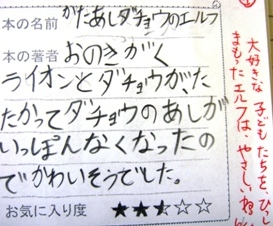 本の名前 かたあしダチョウのエルフ
本の著者 おのきがく
ライオンとダチョウが、た
たかってダチョウのあしが
いっぽんなくなったの
でかわいそうでした。
お気に入り度 ★★★☆☆
大好きな子どもたちをひし
まもったエルフは、やさしいね